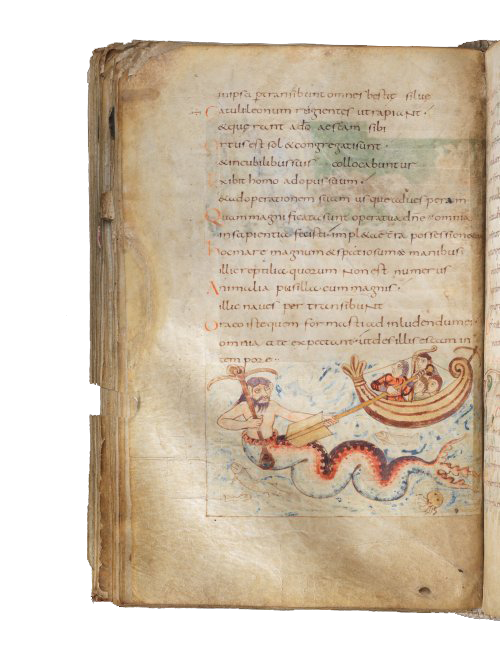 inipsa pertransibunt omnes bestię silue
Catuli leonum rugientes ut rapiant·
& querant a dō aescam sibi
Ortus est sol & congregati sunt·
& in cubilibus suis collocabuntur
Exibit homo ad opus suum·
& ad operationem suam usque ad uesperam
Quam magnificata sunt opera tua dne omnia
in sapientia fecisti· impl&a ē possessione
Hoc mare magnum & spatiosum manibus
illic reptilia quorum non est numerus
Animalia pusilla cum magnis·
illic naues pertransibunt
Draco iste quem formasti ad inludendum ei·
omnia a te expectant· ut des illis escam in
tempore·